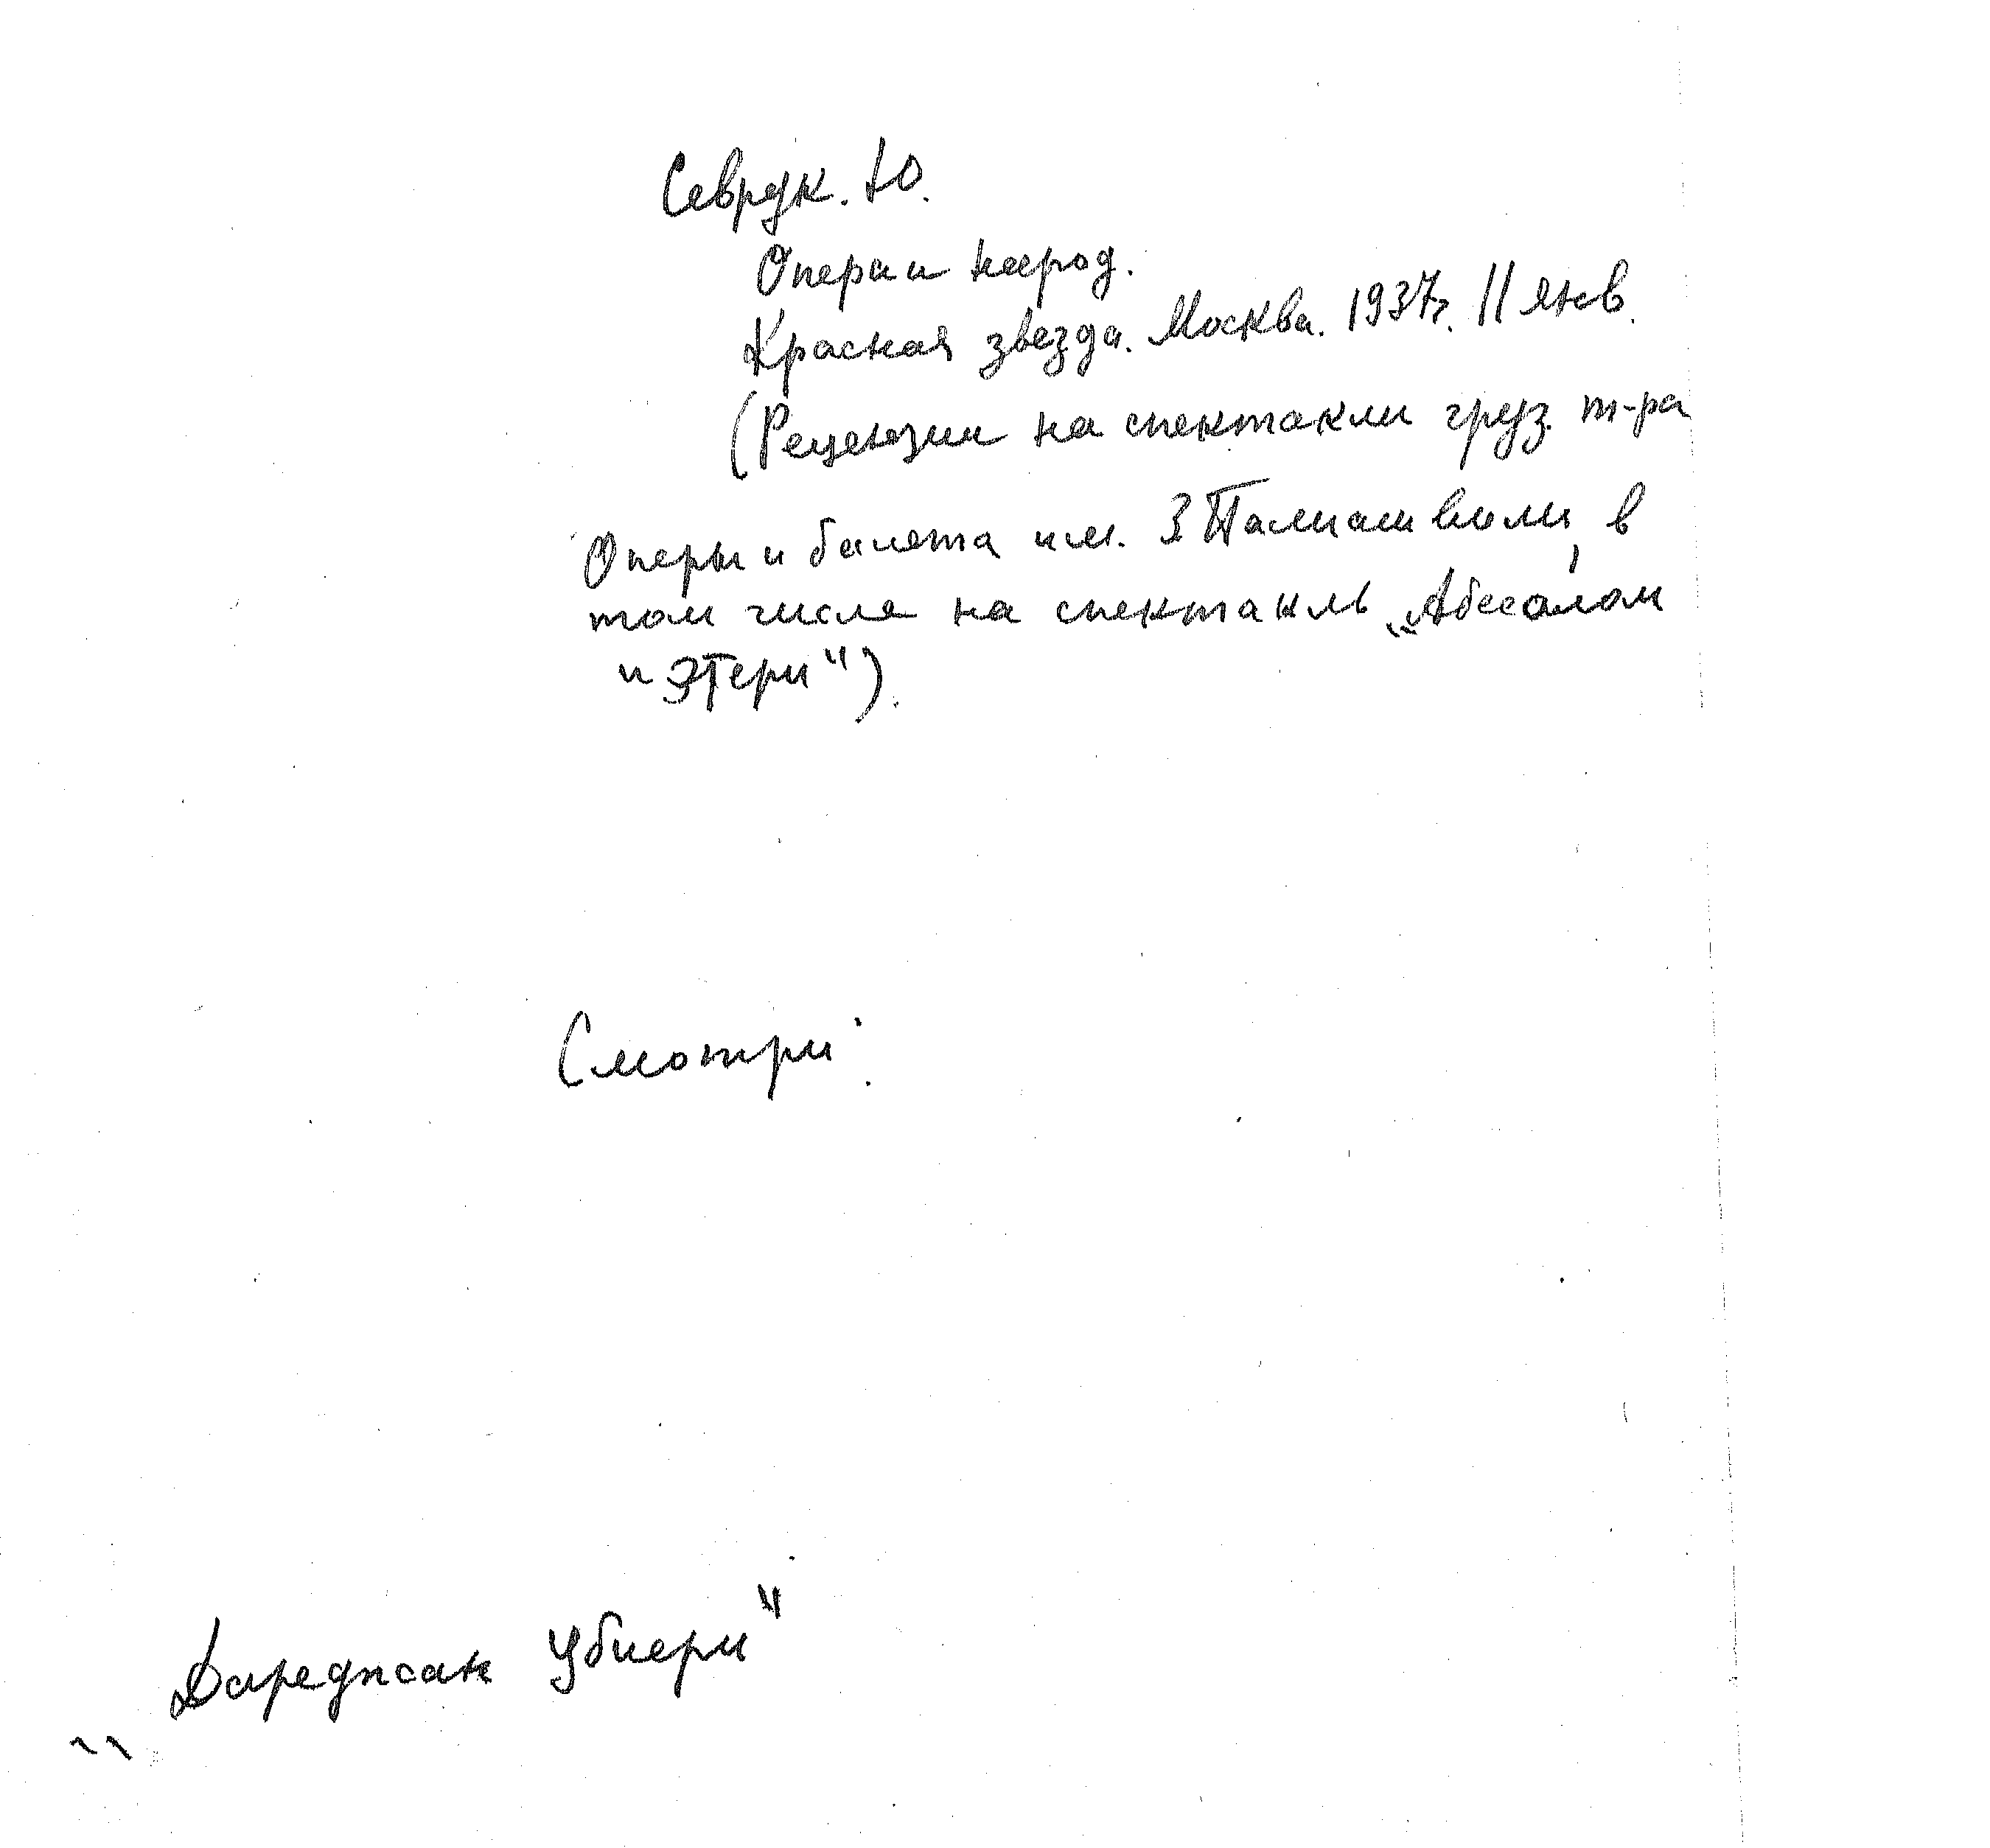 Севрук. Ю.
Опера и народ.
Красная звезда. Москва. 1937г. 11 янв.
(Рецензии на спектакли груз. т-ра
Оперы и балета им. З Палиашвили, в
том числе на спектакль „Абесалом
и Этери")
Смотри:
„Дареджан Цбиери"